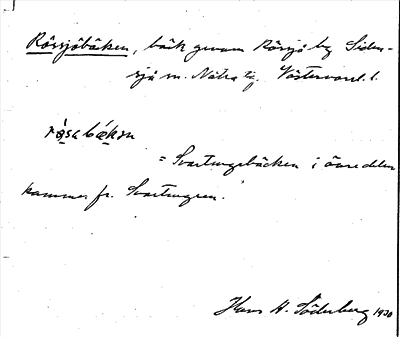 Rörsjöbäcken, bäck genom Rörsjö by Siden-
sjö sn. Nätra tg. Västernorrl. l.
rø̀sabækɒn
= Svartungebäcken i övre delen
kommer fr. Svartungen.
Hans H. Söderberg 1930